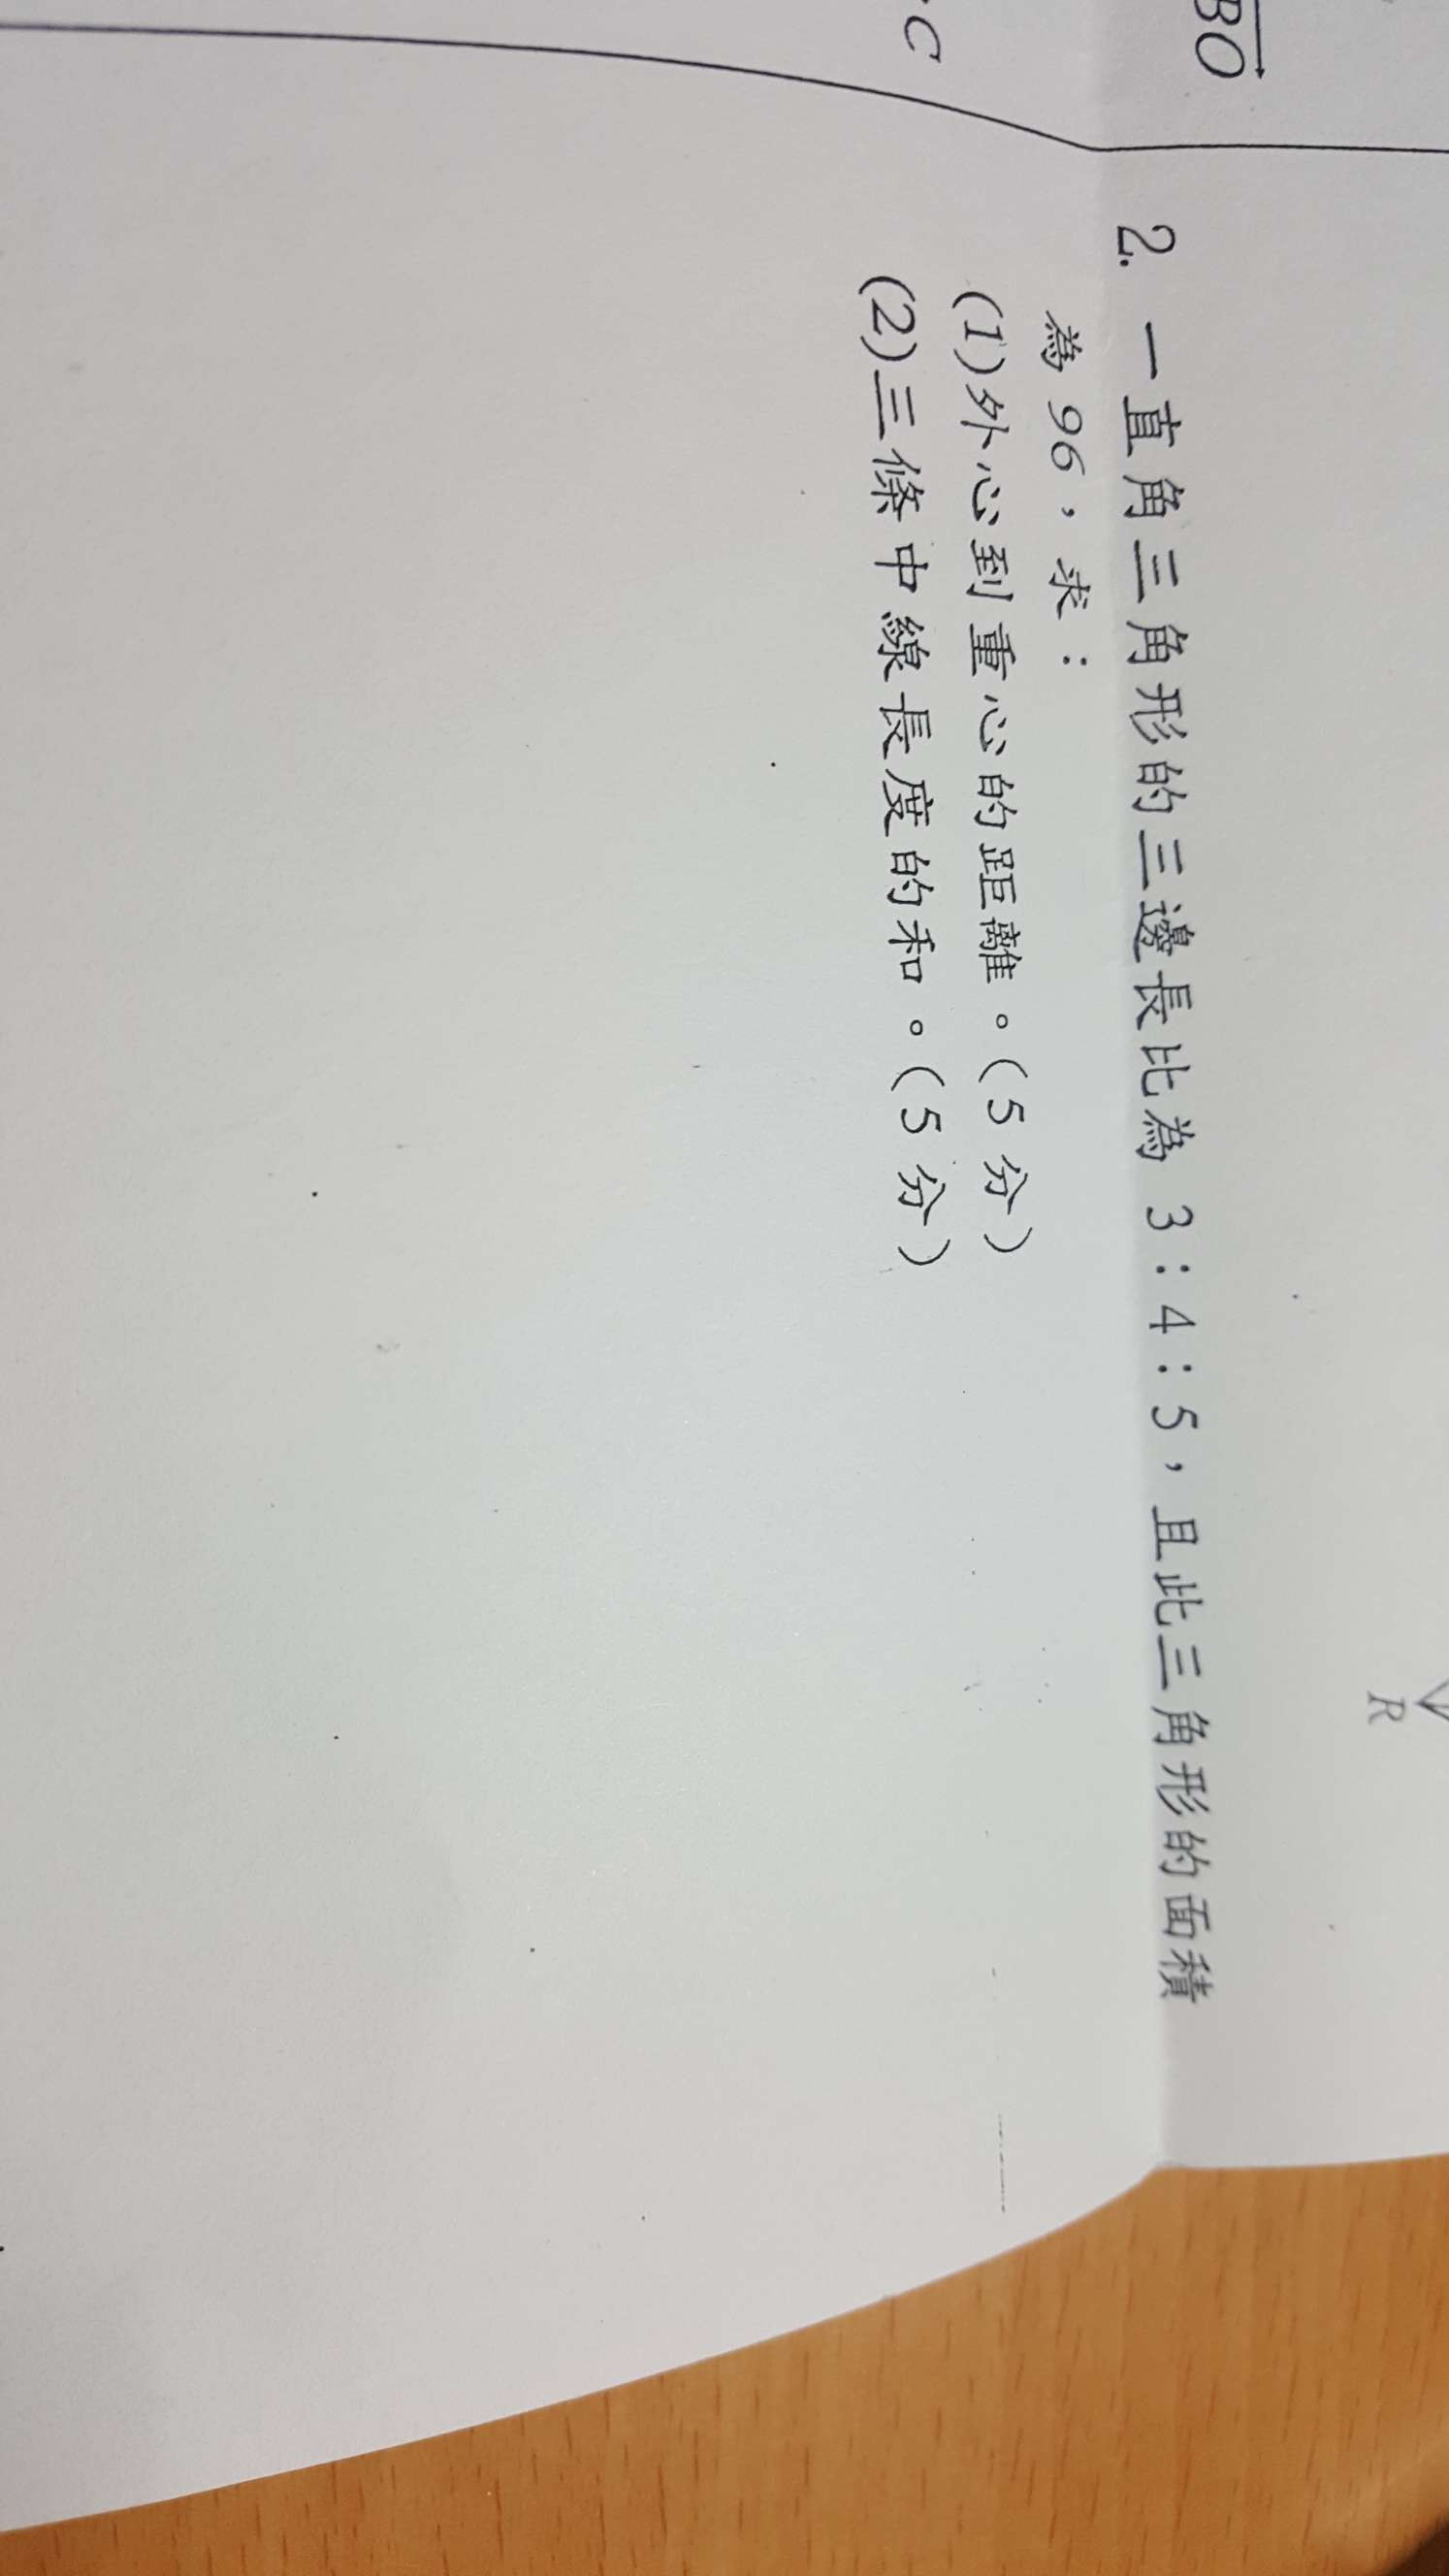 BO
C
R
2. 一直角三角形的三邊長比為 3:4:5,且此三角形的面積
為 96,求:
(1)外心到重心的距離。(5分)
(2)三條中線長度的和。(5分)